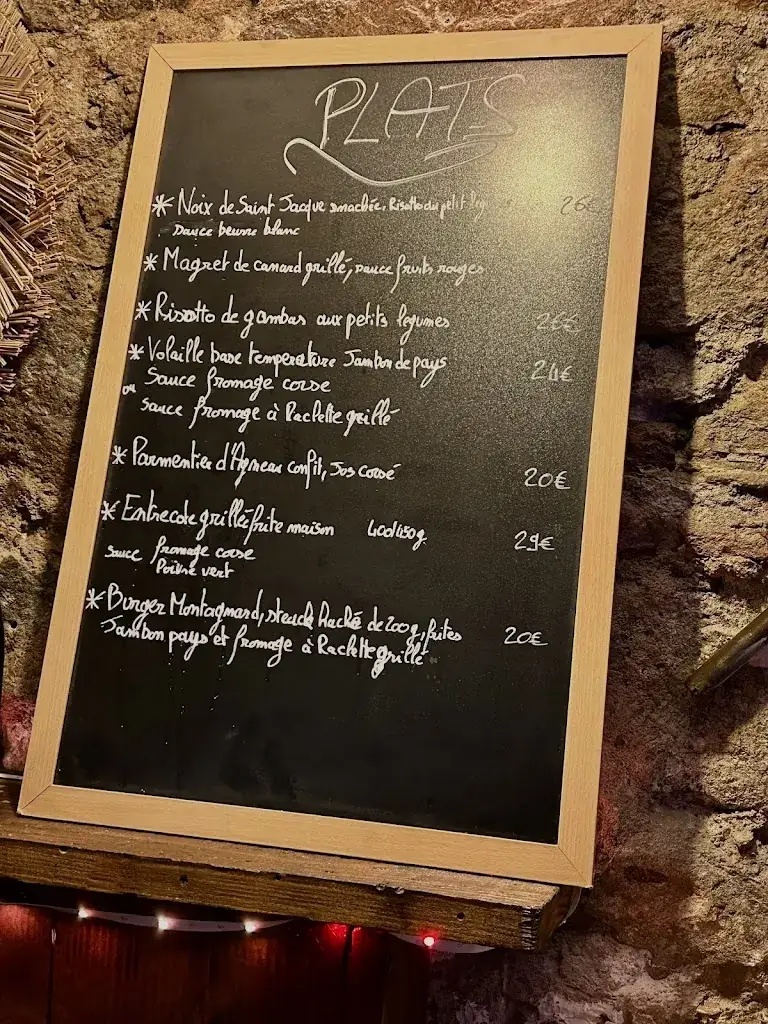 PLATS
* Noix de Saint Jacque snackée, Risotto du petit 26€
Sauce beurre blanc
* Magret de canard grillé, sauce fruits rouges
* Risotto de gambas aux petits legumes 26€
* Volaille base temperature Jambon de pays 24€
Sauce fromage corse
ou
Sauce fromage à Raclette grillé
* Parmentier d'Agneau confit, Jus corsé 20€
* Entrecote grillée frite maison 400/450g 29€
Sauce fromage corse
Poivre vert
* Burger Montagnard, steack haché de 200g, frites 20€
Jambon pays et fromage à Raclette grillé